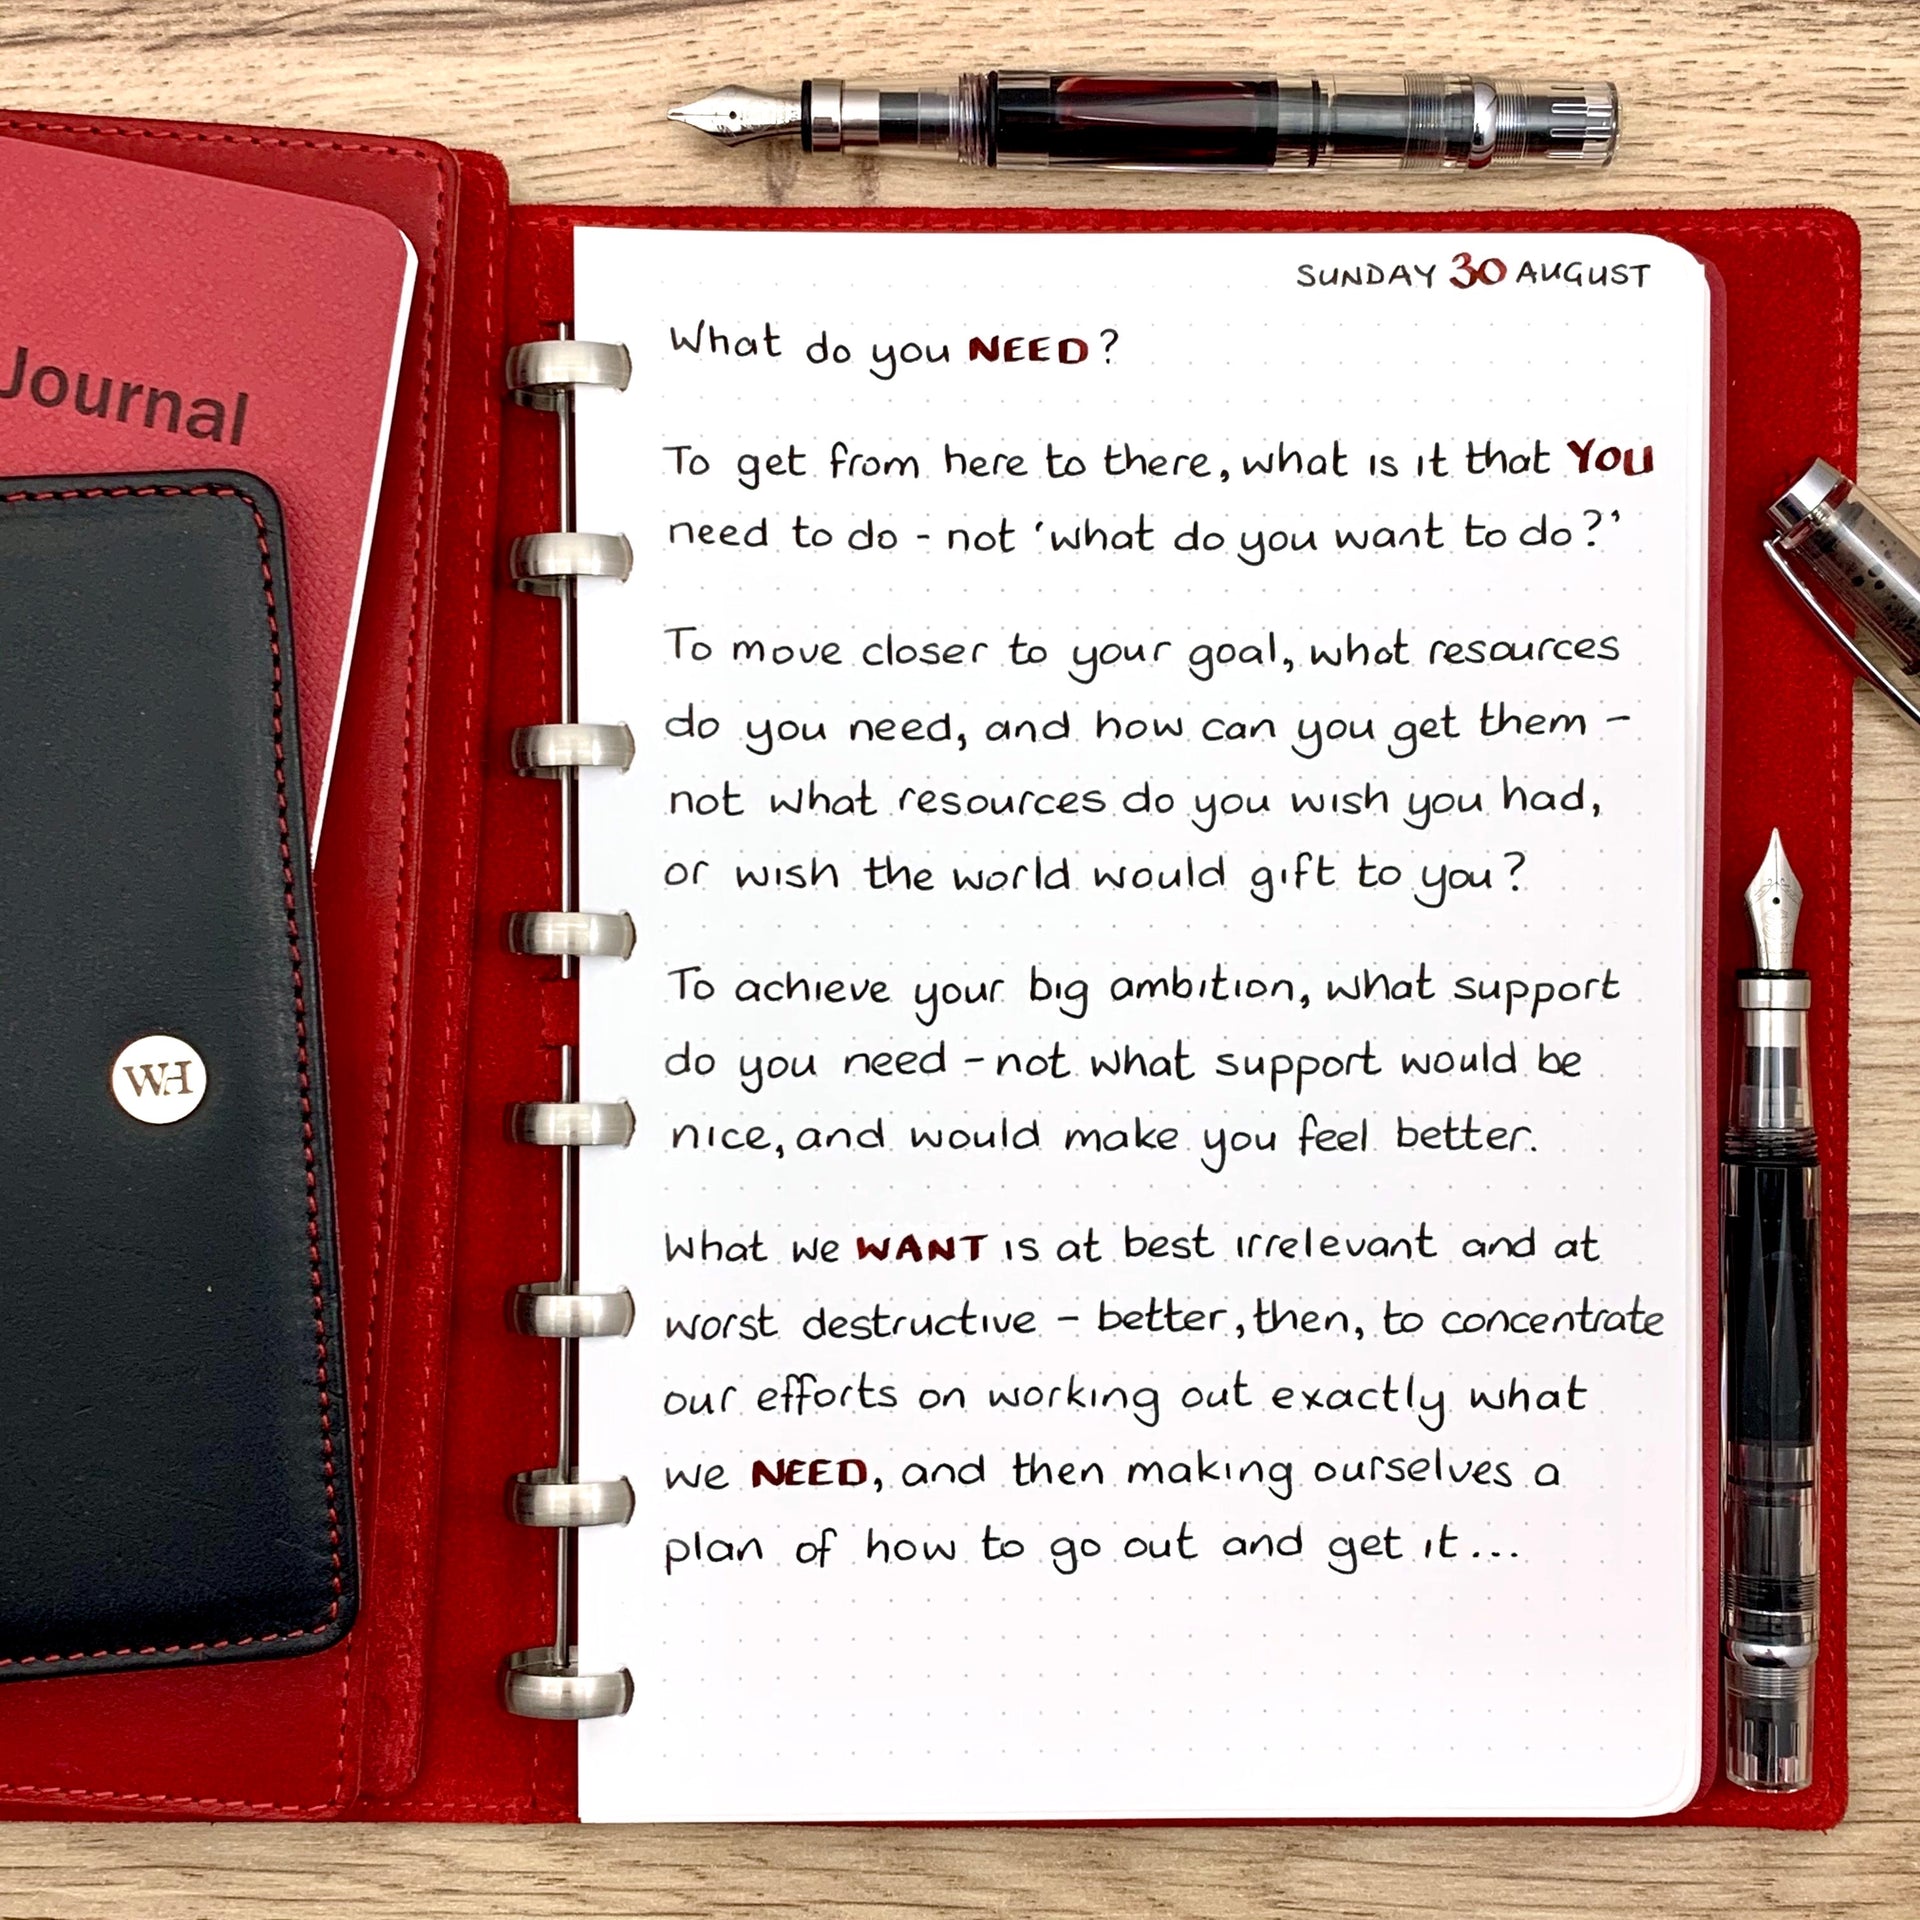 Journal
WH
SUNDAY 30 AUGUST
What do you NEED?
To get from here to there, what is it that YOU
need to do - not 'what do you want to do?'
To move closer to your goal, what resources
do you need, and how can you get them -
not what resources do you wish you had,
or wish the world would gift to you?
To achieve your big ambition, what support
do you need - not what support would be
nice, and would make you feel better.
What we WANT is at best irrelevant and at
worst destructive - better, then, to concentrate
our efforts on working out exactly what
we NEED, and then making ourselves a
plan of how to go out and get it...